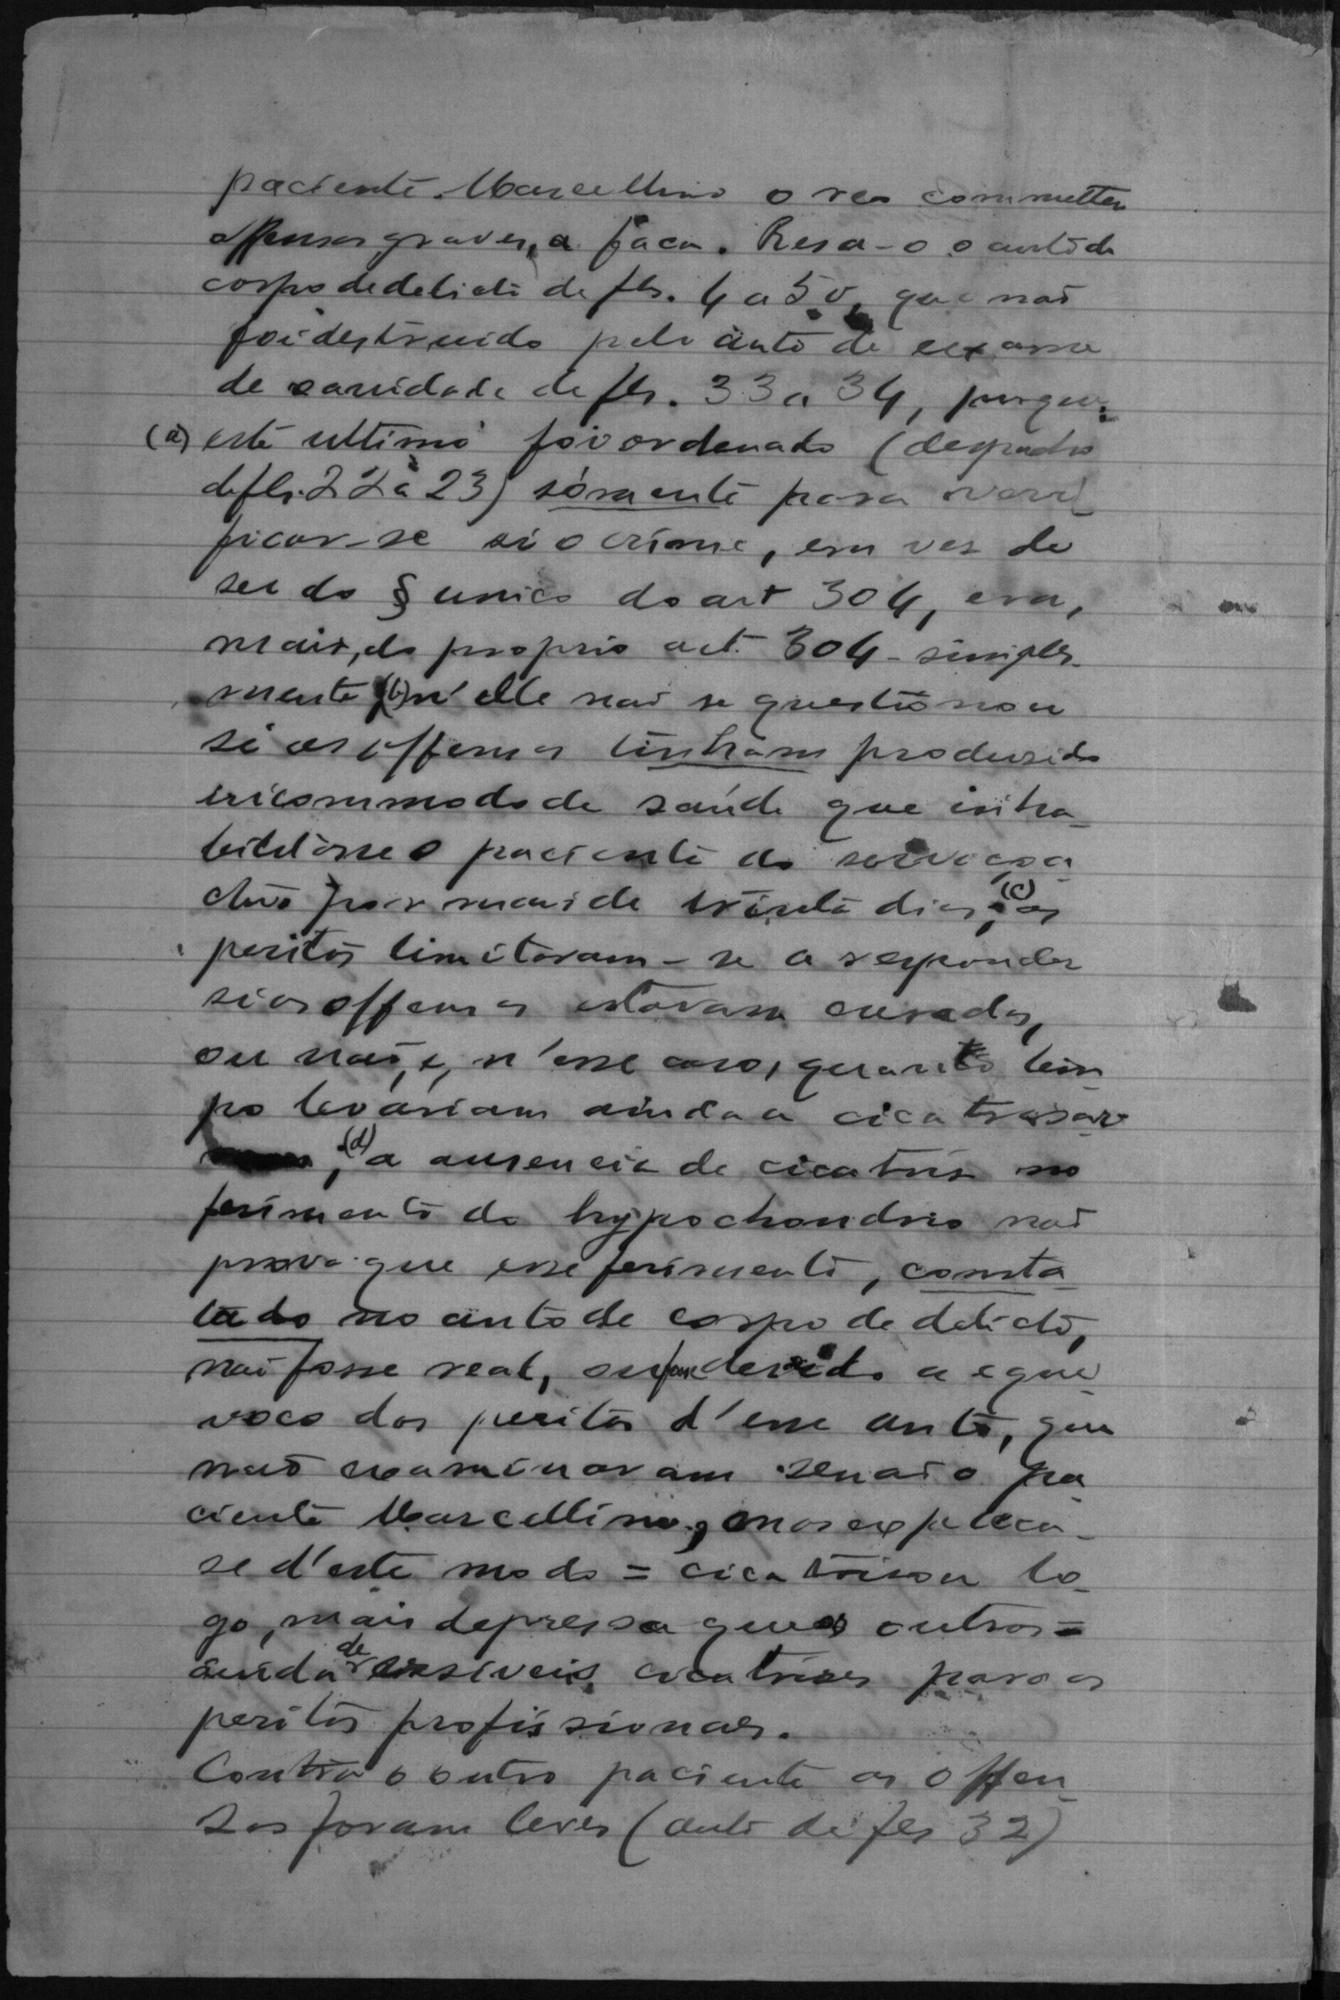 paciente Marcellino o reo commetteu
offensas graves, a faca. Resa-o o auto de
corpo de delicto de fls. 4 a 5 v, que não
foi destruido pelo auto de exame
de sanidade de fls. 33 a 34, porque:
(a) este ultimo foi ordenado (despacho
de fls. 22 a 23) sómente para veri-
ficar-se si o crime, em vez de
ser do § unico do art 304, era,
mais, do proprio art. 304 - simples-
mente (b) n'elle não se questionou
si as offensas tinham produzido
incommodo de saúde que inha-
bilitasse o paciente do serviço a-
ctivo por mais de trinta dias; (c) os
peritos limitaram-se a responder
si as offensas estavam curadas,
ou não, e, n'esse caso, quanto tem-
po levariam ainda a cicatrisar
; (d) a ausencia de cicatris no
ferimento do hypochondrio não
prova que esse ferimento, consta-
tado no auto de corpo de delicto,
não fosse real, ou fosse devido a equi-
voco dos peritos d'esse auto, que
não examinaram senão o pa-
ciente Marcellino, mas explica-
se d'este modo = cicatrisou lo-
go, mais depressa que os outros =
ainda de visiveis cicatrises para os
peritos profissionaes.
Contra o outro paciente as offen-
sas foram leves (auto de fls 32)